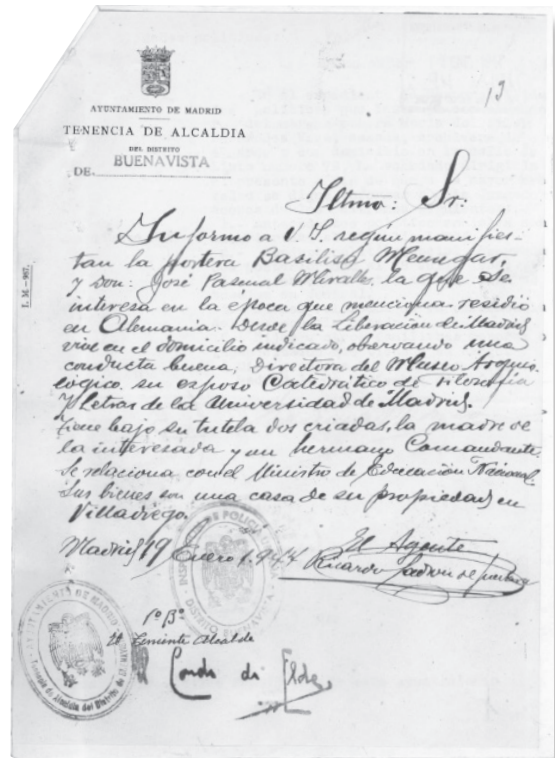 13
AYUNTAMIENTO DE MADRID
TENENCIA DE ALCALDIA
DEL DISTRITO
DE BUENAVISTA
I. M.-967.
Iltmo: Sr:
Informo a V. S. según manifies-
tan la portera Basilisa
y Don: José Pascual Miralles, la que se
interesa en la epoca que menciona residió
en Alemania. Desde la Liberación de Madrid
vive en el domicilio indicado, observando una
conducta buena, Directora del Museo Arqueo-
lógico, su esposo Catedrático de Filosofia
y Letras de la Universidad de Madrid.
Tiene bajo su tutela dos criadas, la madre de
la interesada y un hermano Comandante.
Se relaciona con el Ministro de Educación Nacional.
Sus bienes son una casa de su propiedad en
Villadiego.
Madrid 19 Enero 1.944
El Agente
Ricardo Ladron de
Vº Bº
El Teniente Alcalde
Conde de Elda
AYUNTAMIENTO DE MADRID
Tenencia de Alcaldía del Distrito de
DE POLICIA
DISTRITO BUENAVISTA